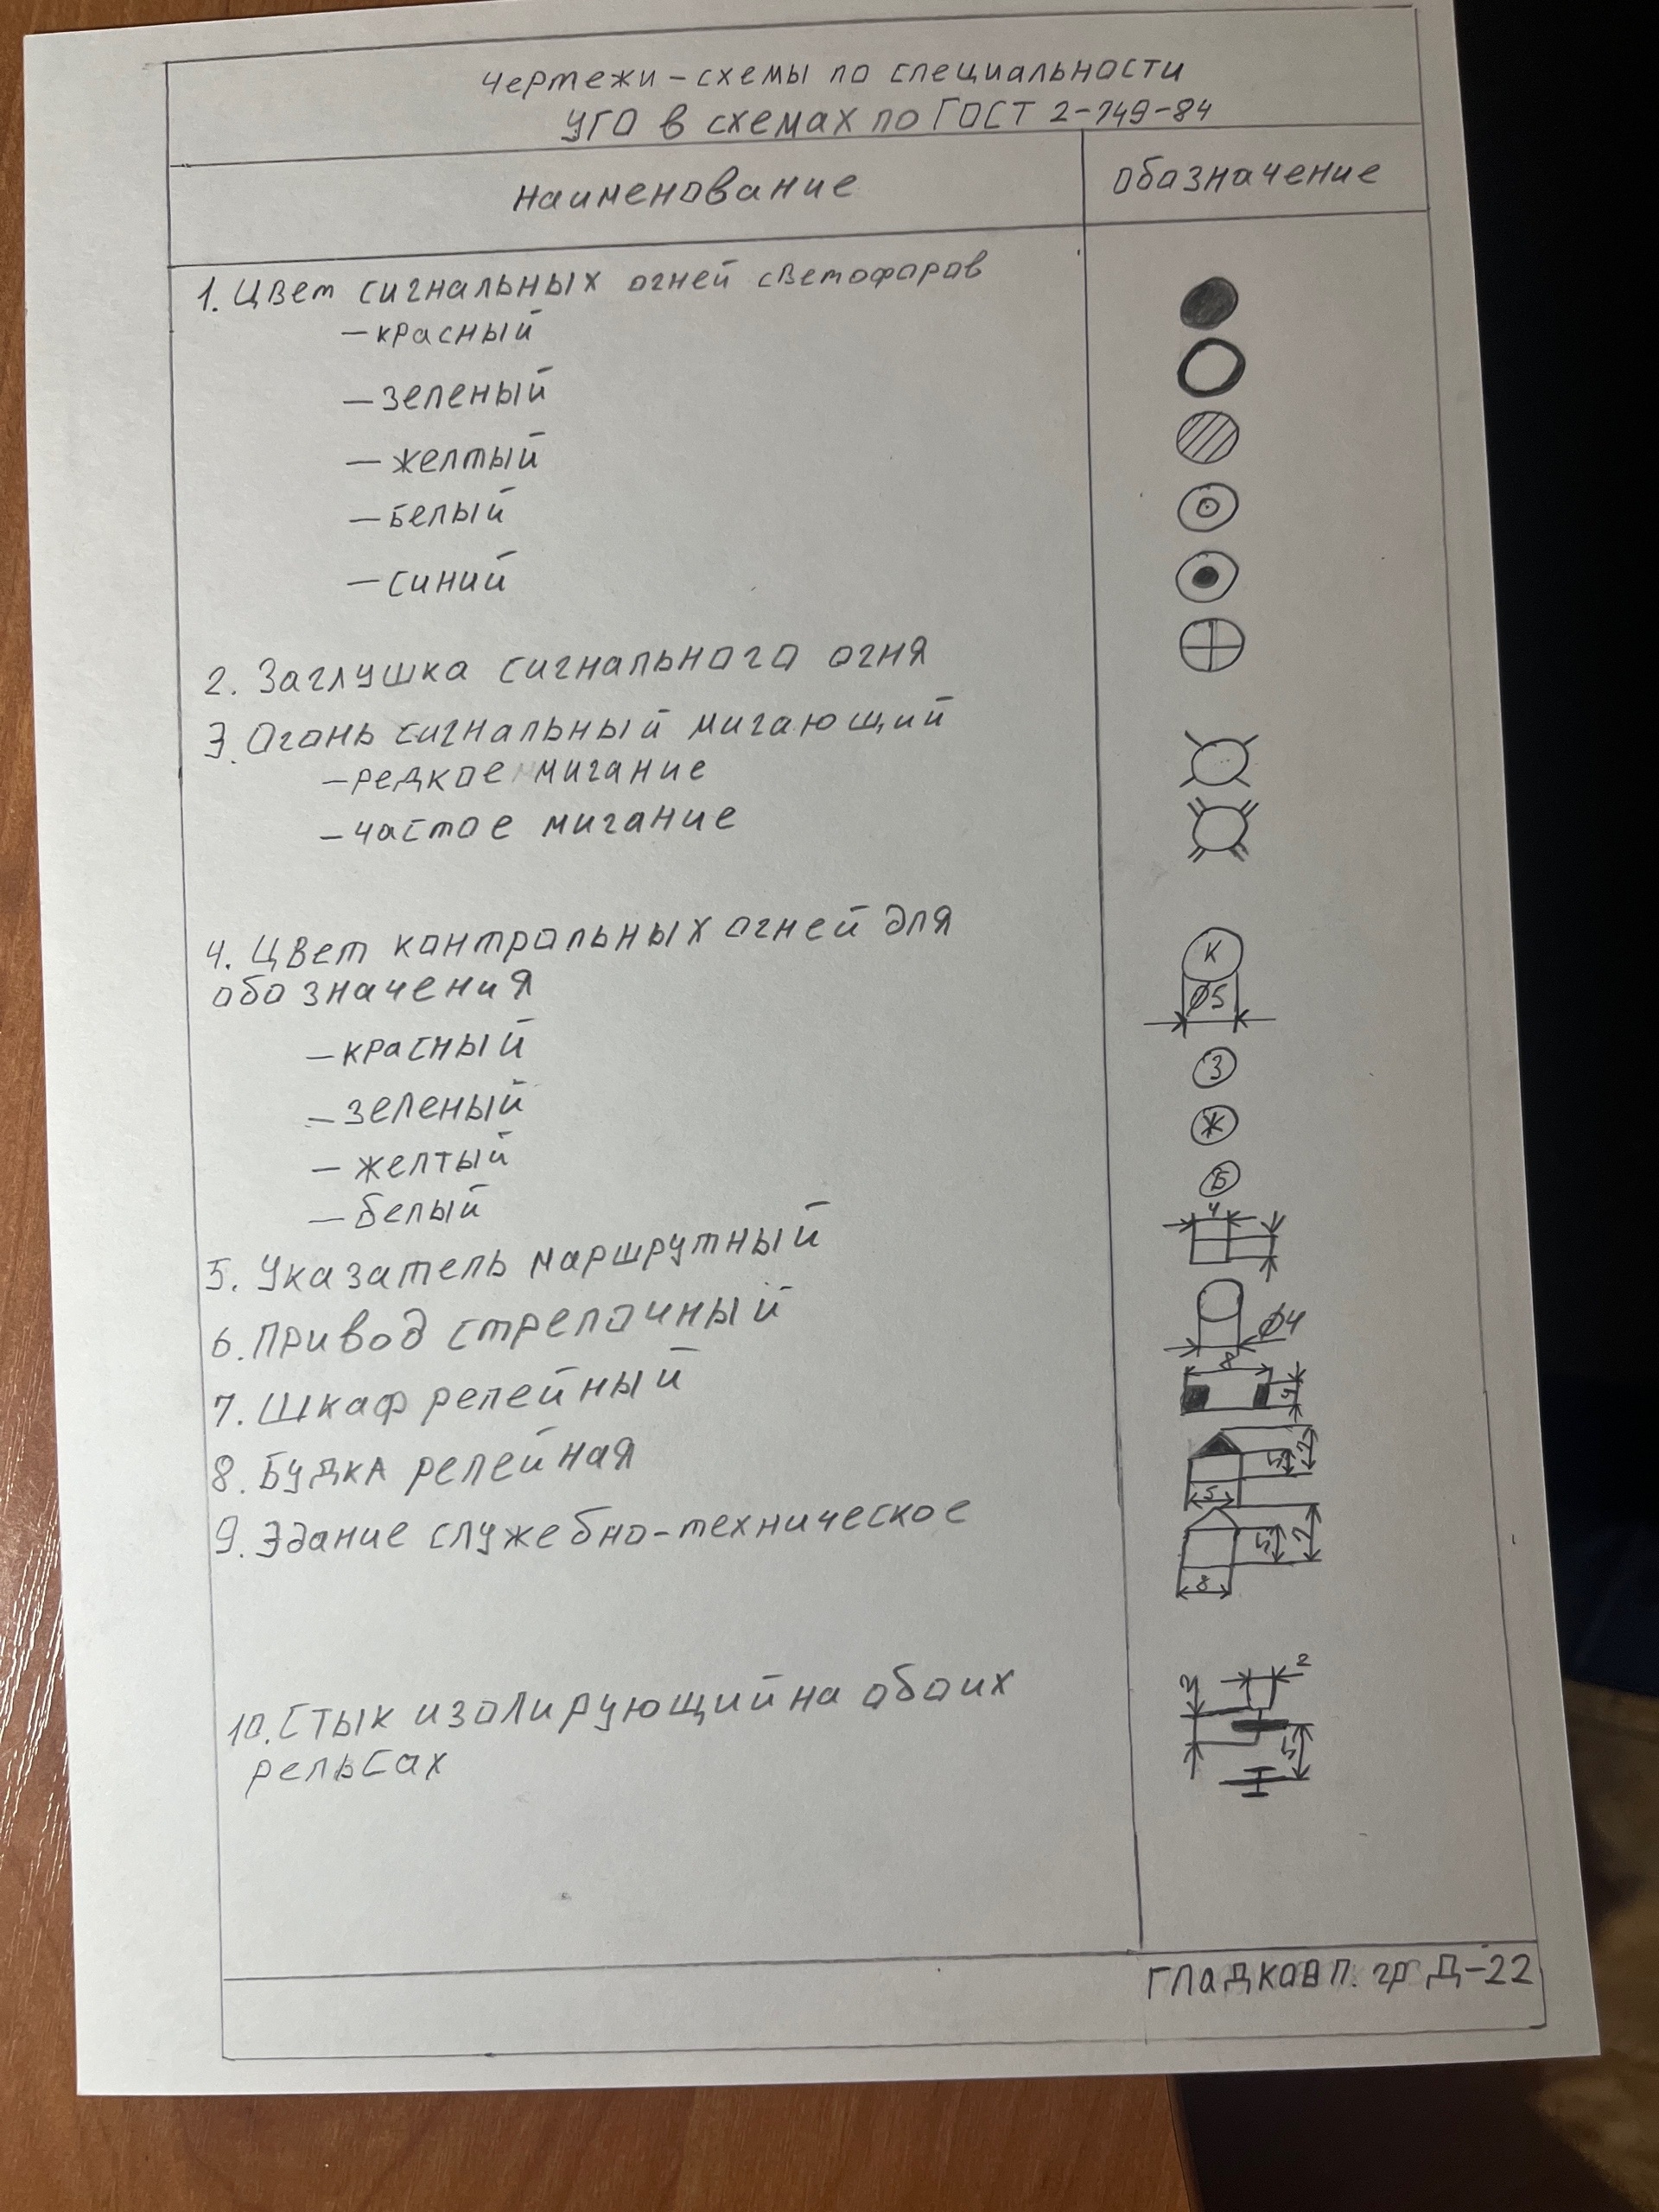 Чертежи-схемы по специальности
УГО в схемах по ГОСТ 2-749-84
Наименование
Обозначение
1. Цвет сигнальных огней светофоров
-красный
-зеленый
-желтый
-белый
-синий
2. Заглушка сигнального огня
3. Огонь сигнальный мигающий
-редкое мигание
-частое мигание
4. Цвет контрольных огней для
обозначения
К
⌀5
-красный
З
-зеленый
Ж
-желтый
Б
-белый
4
5. Указатель маршрутный
6. Привод стрелочный
⌀4
8
7. Шкаф релейный
8. Будка релейная
5
9. Здание служебно-техническое
8
2
10. Стык изолирующий на обоих
рельсах
Гладков П. гр Д-22